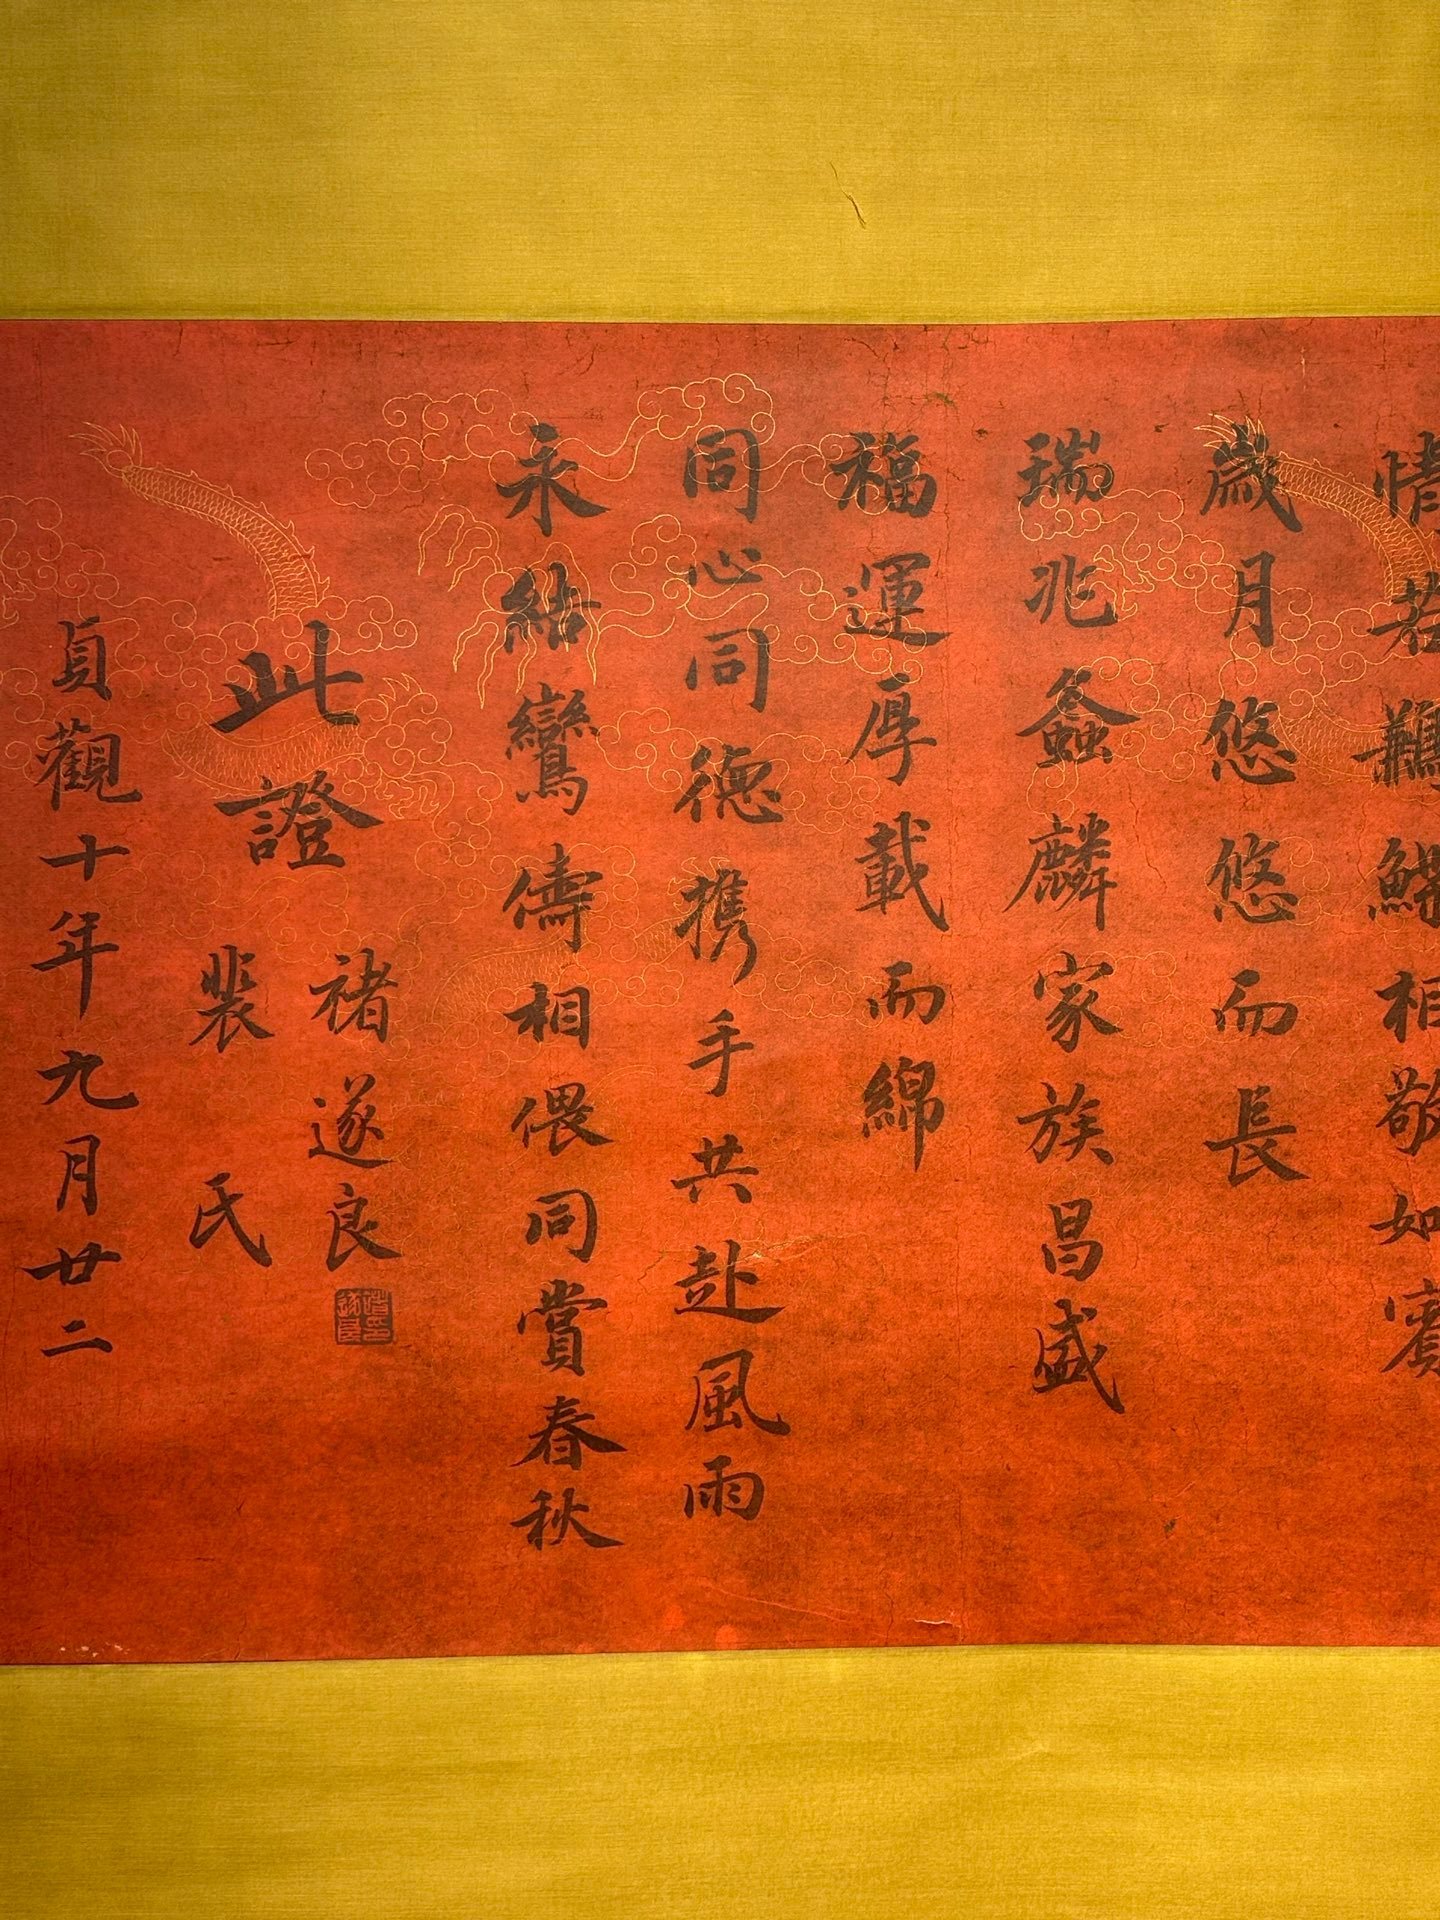 情若鶼鰈相敬如賓
歲月悠悠而長
瑞兆螽麟家族昌盛
福運厚載而綿
同心同德携手共赴風雨
永結鸞儔相偎同賞春秋
此證
褚遂良
裴氏
貞觀十年九月廿二